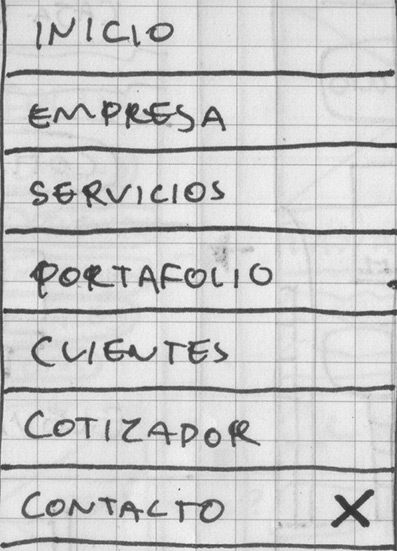 INICIO
EMPRESA
SERVICIOS
PORTAFOLIO
CLIENTES
COTIZADOR
CONTACTO X